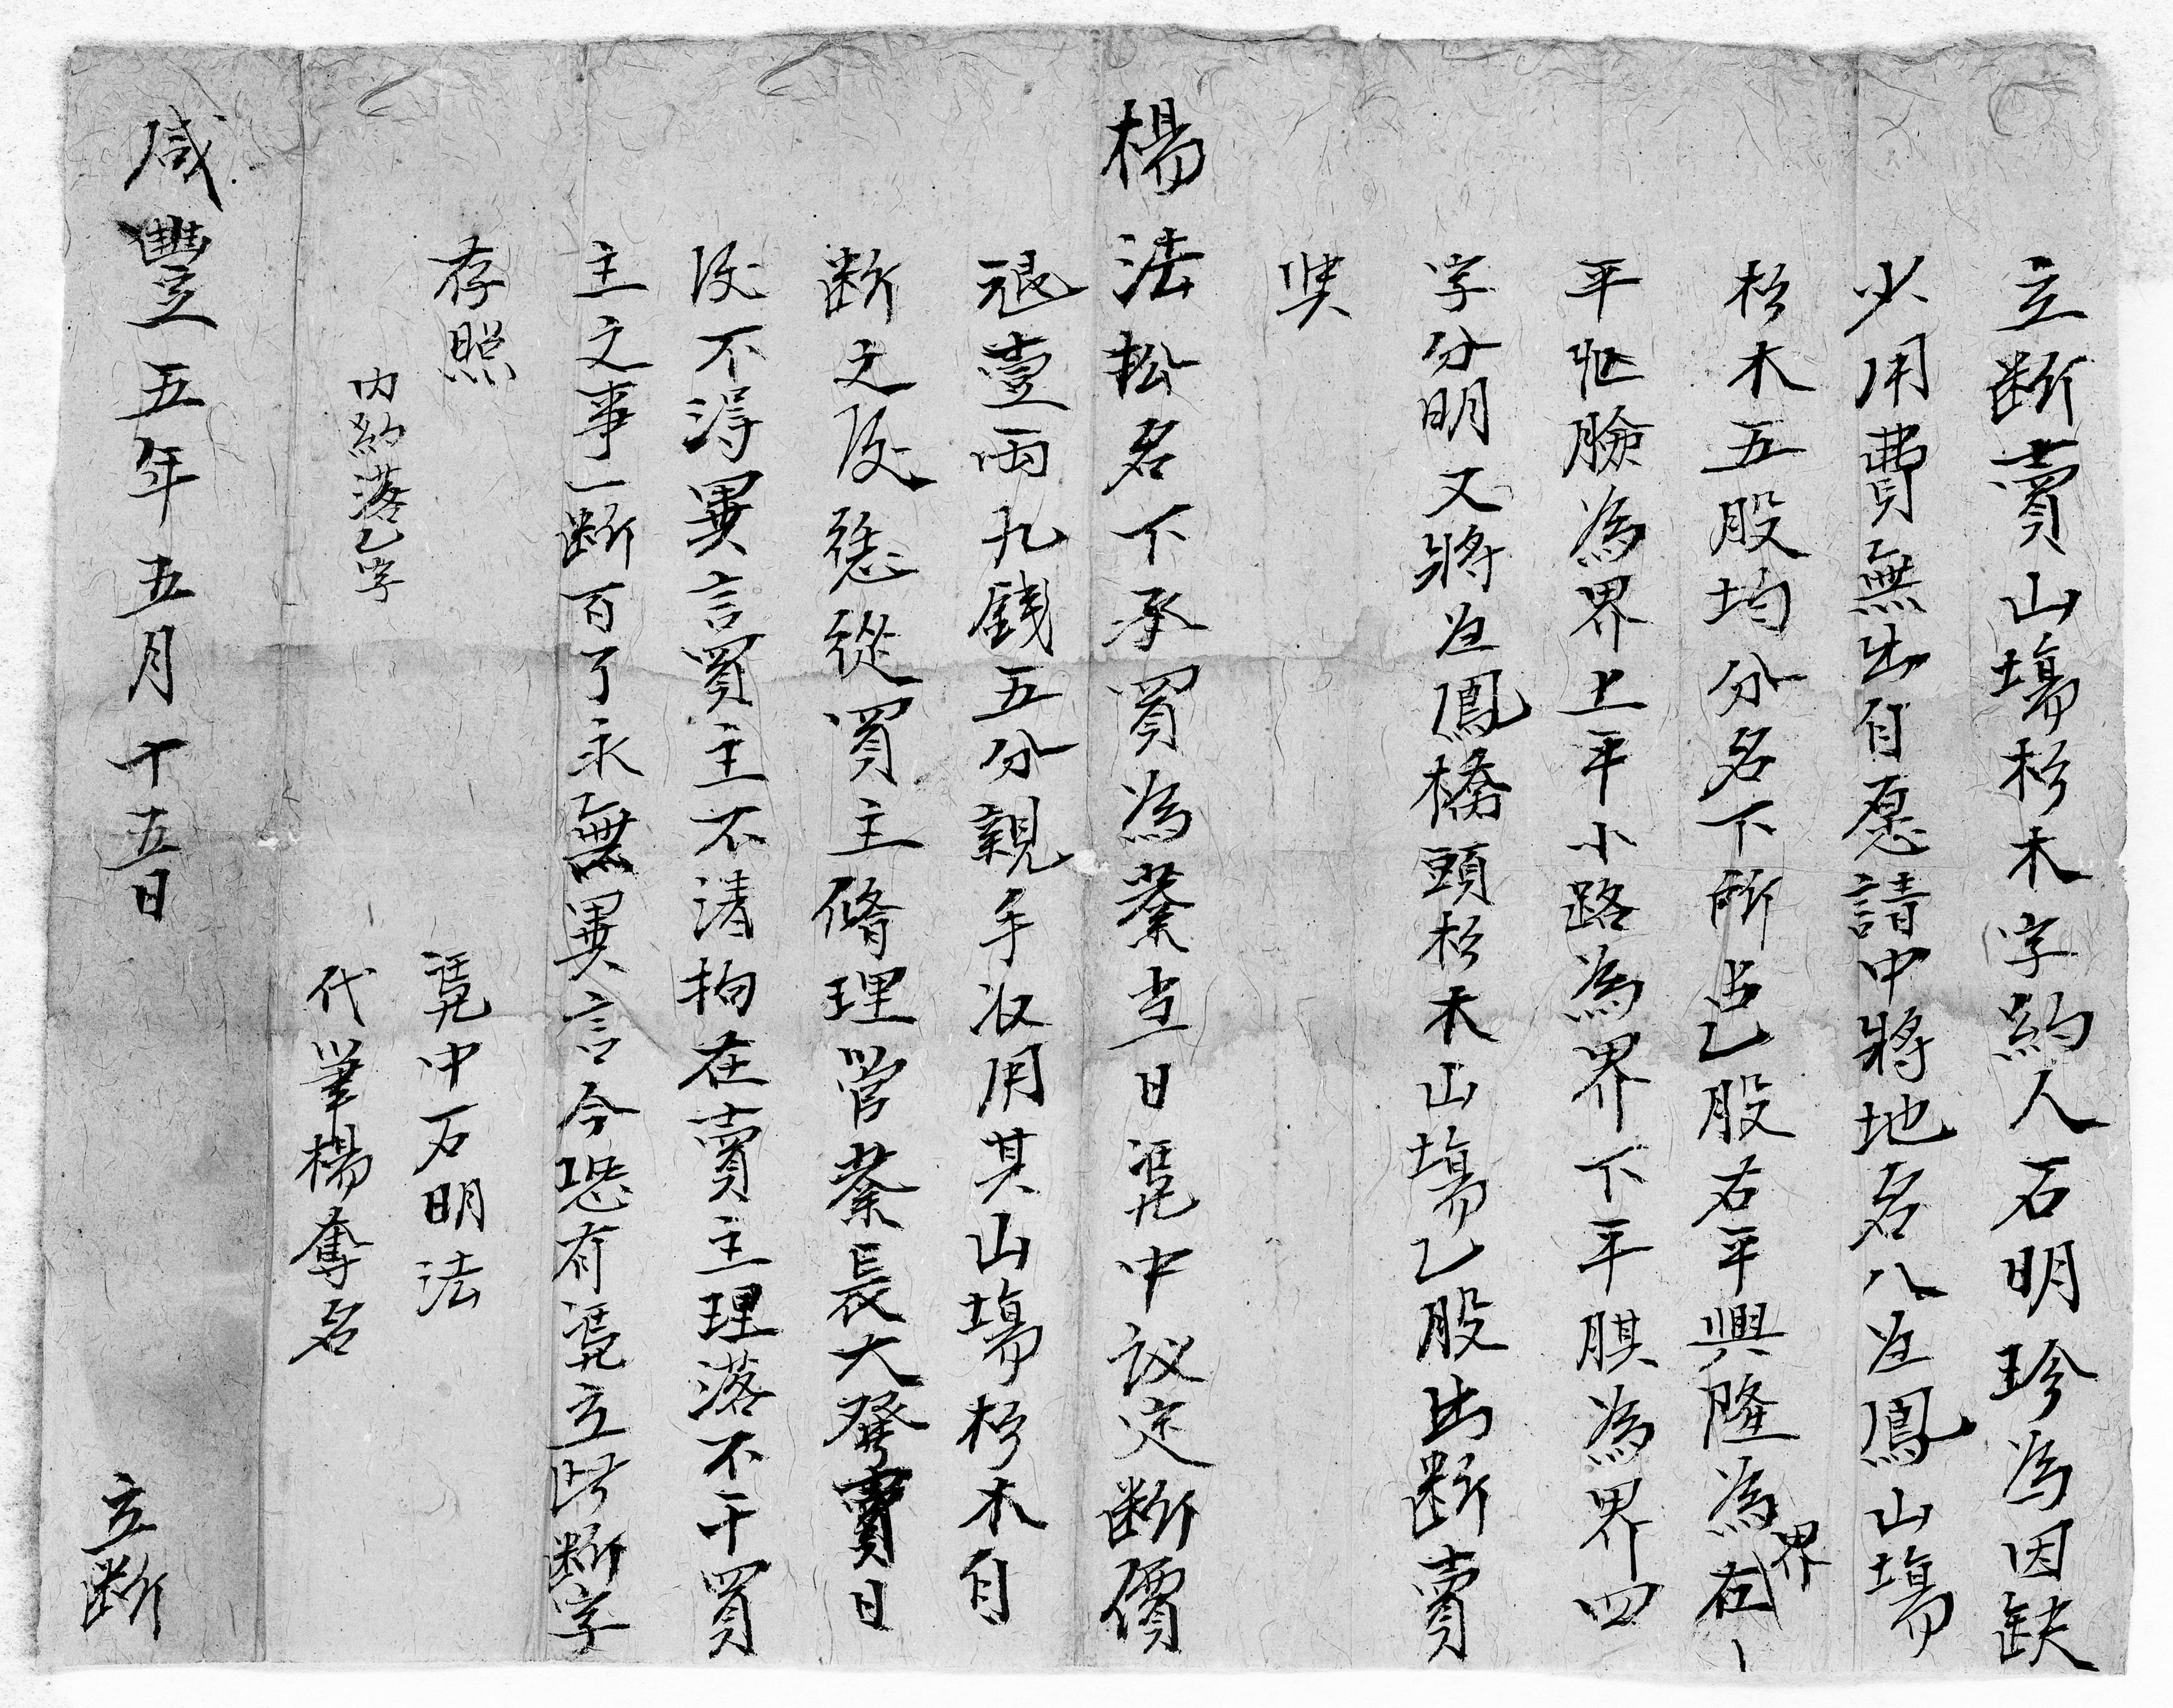 立断賣山塲杉木字約人石明珍為因缺
少用費無出自愿請中將地名八爲鳳山塲
杉木五股均分名下所占乙股右平興隆為界左
平臉為界上平小路為界下平賎為界四
字分明又將鳳橋頭杉木山塲乙股出断賣
與
楊法松名下承買為業當日凴中议定断價
銀壹両九錢五分親手収用其山塲杉木自
断之後憑從買主修理管業長大發賣日
後不得異言買主不清拘在賣主理落不干買
主之事一断百了永無異言今恐有凴立此断字
存照
内約落乙字
凴中石明法
代筆楊奪名
咸豐五年五月十五日
立断